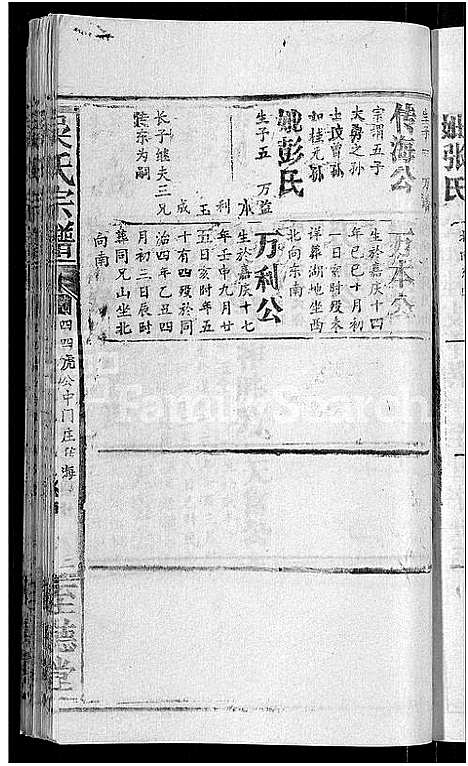 妣张氏
传海公
宗谓五子
大勇之孙
士玟曾孙
如桂元孙
妣彭氏
生子五 万益
水
利
玉
成
长子继夫三兄
裳东为嗣
万本公
生於嘉庆十四
年己巳十月初
一日寅时殁未
详葬湖地坐西
北向东南
万利公
生於嘉庆十七
年壬申九月廿
五日亥时年五
十有四殁於同
治四年乙丑四
月初三日辰时
葬同兄山坐北
向南
吴氏宗谱
四四虎公中门庄传海
至德堂
FamilySearch